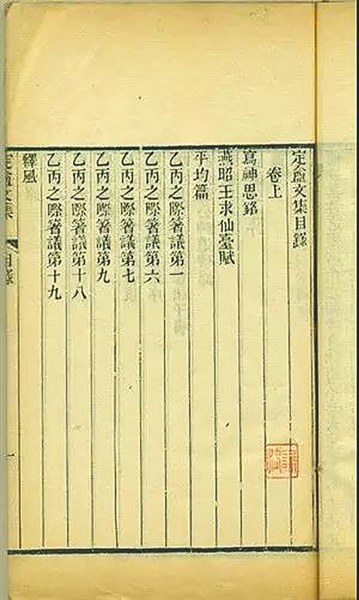 定盦文集目錄
卷上
寫神思銘
燕昭王求仙臺賦
平均篇
乙丙之際箸議第一
乙丙之際箸議第六
乙丙之際箸議第七
乙丙之際箸議第九
乙丙之際箸議第十八
乙丙之際箸議第十九
釋風
定盦文集
目錄
一